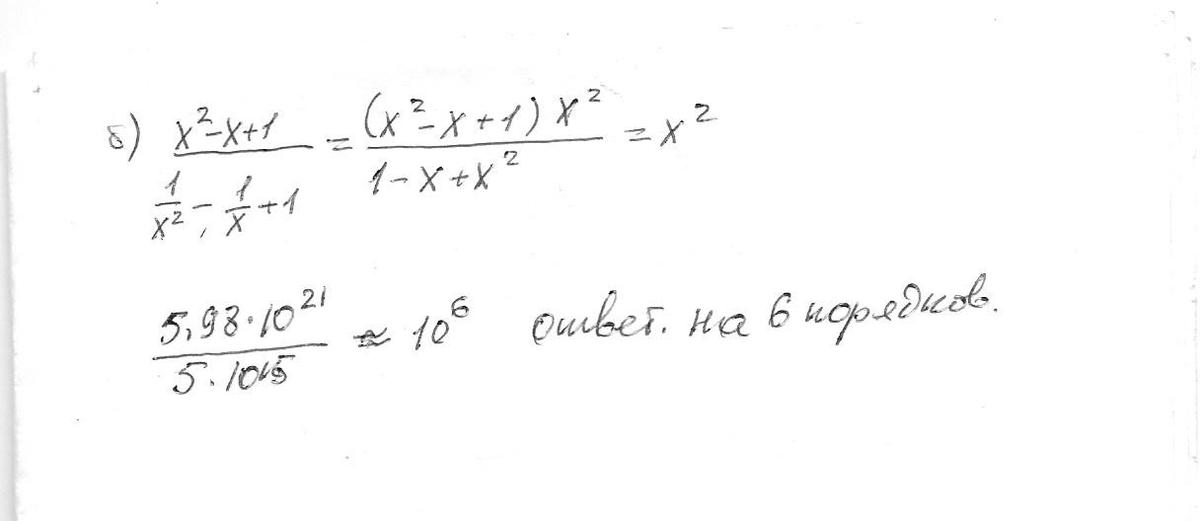 б) (x²-x+1)/(1/x² - 1/x + 1) = ((x²-x+1)x²)/(1-x+x²) = x²
(5,98·10²¹)/(5·10¹⁵) ≈ 10⁶ ответ. на 6 порядков.